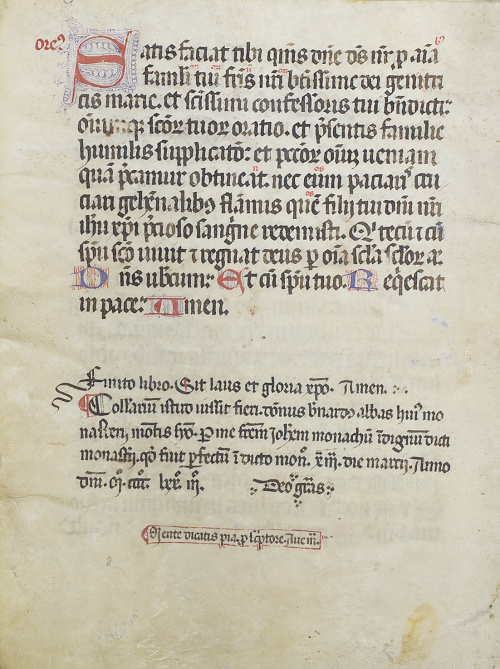 Satis faciat tibi qms dne ds nr p aia
famli tui fris nri btissime dei genitri
cis marie. et scissimi confessoris tui bndicti:
oiumq; scor tuor oratio. et psentis familie
humilis supplicatio: et pctor oium ueniam
qua pcamur obtineat. nec eum paciaris cru
ciari gehenalib9 flamis que filij tui dni nri
ihu xpi pcioso sangne redemisti. Qi tecu i cu
spu sco uiuit τ regnat deus p oia scla sclor am.
Dns ubcum: Et cu spu tuo. Reqescat
in pace: Amen.
Finito libro. Sit laus et gloria xpo. Amen.
Collariu istud iussit fieri. domnus bnardo abbas hui9 mo
nasterij, motis. P me frem Johem monachu idignum dicti
monastij. qd fuit pfectu i dicto mon. xiij. die marcij. Anno
dni. m. cccc lxx. iij. Deo grās.
Mente dicatis pia. p scptore. Aue m.